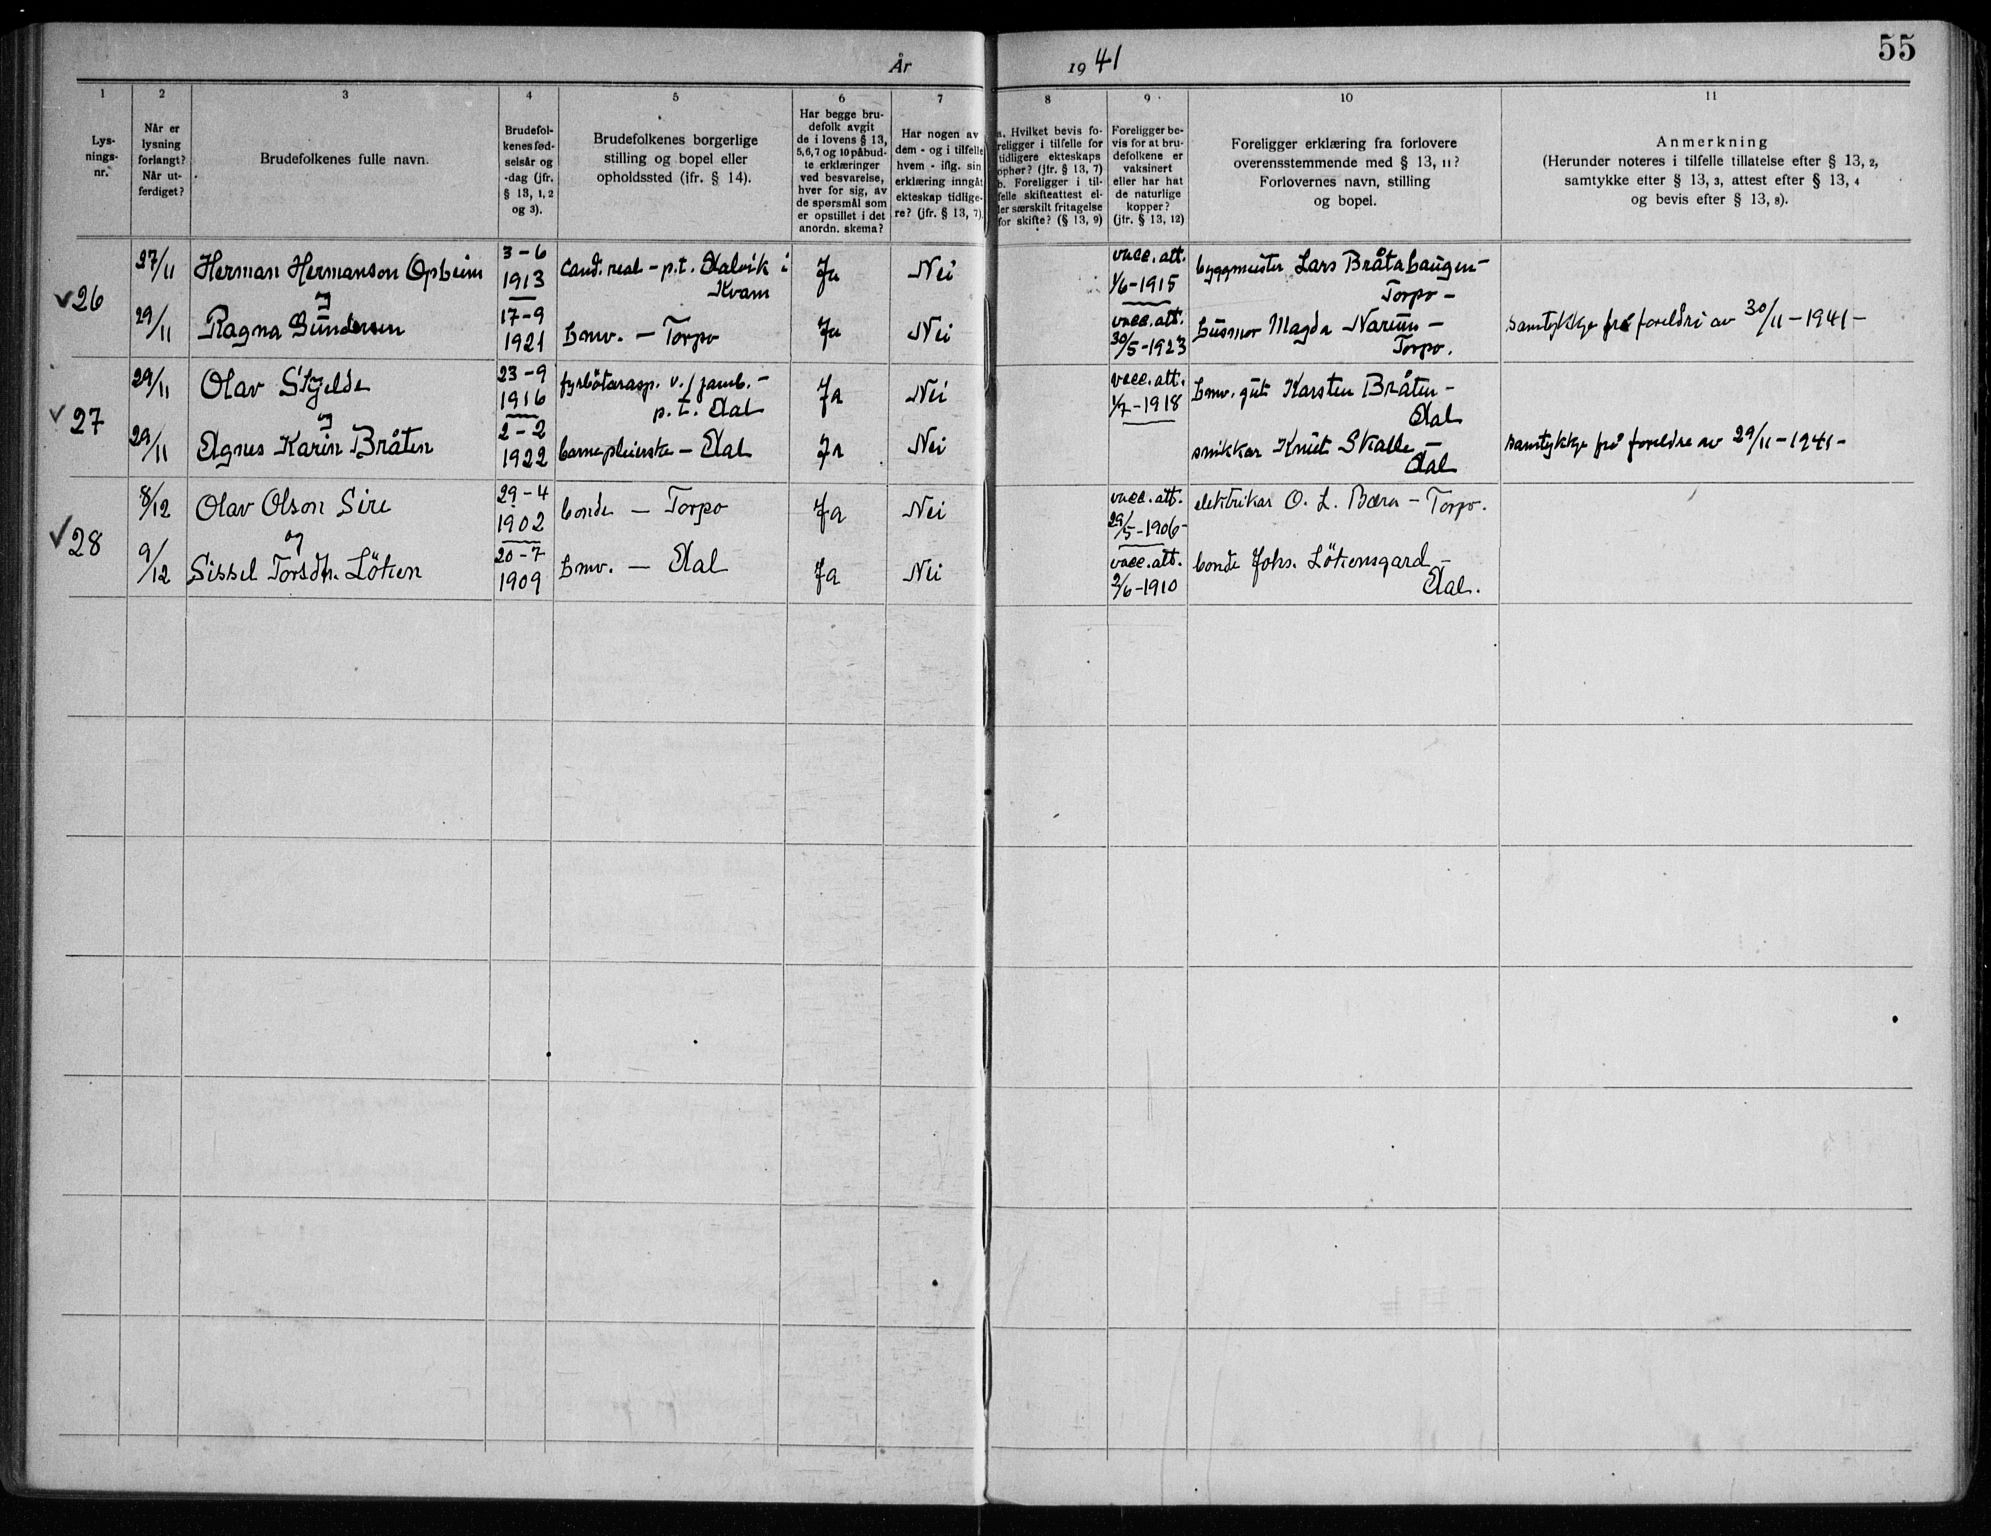 55
År 1941
1 2 3 4 5 6 7 8 9 10 11
Lys-
nings-
nr.
Når er
lysning
forlangt?
Når ut-
ferdiget?
Brudefolkenes fulle navn.
Brudefol-
kenes fød-
selsår og
-dag (jfr.
§ 13, 1, 2
og 3).
Brudefolkenes borgerlige
stilling og bopel eller
opholdssted (jfr. § 14).
Har begge bru-
defolk avgit
de i lovens § 13,
5, 6, 7 og 10 påbud-
te erklæringer
ved besvarelse,
hver for sig, av
de spørsmål som
er opstillet i det
anordn. skema?
Har nogen av
dem - og i tilfelle
hvem - iflg. sin
erklæring inngåt
ekteskap tidlige-
re? (jfr. § 13, 7).
a. Hvilket bevis fo-
religger i tilfelle for
tidligere ekteskaps
ophør? (jfr. § 13, 7)
b. Foreligger i til-
felle skifteattest el-
ler særskilt fritagelse
for skifte? (§ 13, 9)
Foreligger be-
vis for at bru-
defolkene er
vaksinert
eller har hat
de naturlige
kopper?
(jfr. § 13, 12)
Foreligger erklæring fra forlovere
overensstemmende med § 13, 11?
Forlovernes navn, stilling
og bopel.
Anmerkning
(Herunder noteres i tilfelle tillatelse efter § 13, 2,
samtykke efter § 13, 3, attest efter § 13, 4
og bevis efter § 13, 8).
26
27/11 Herman Hermanson Opheim 3-6 1913 cand. real - p.t. Aalvik i Kvam Ja Nei vacc. att. 1/6-1915 byggmeister Lars Bråtahaugen - Torpo -
og
29/11 Ragna Gundersen 17-9 1921 hmv. - Torpo Ja Nei vacc. att. 30/5-1923 husmor Magda Narum - Torpo. samtykkje frå foreldre av 30/11-1941-
27
29/11 Olav Skjelde 23-9 1916 fyrbötarasp. v./jarnb. - p.t. Aal Ja Nei vacc. att. 1/7-1918 hmv. gut Karsten Bråten - Aal
og
29/11 Agnes Karin Bråten 2-2 1922 barnepleierske - Aal Ja Nei snikkar Knut Skalle - Aal samtykkje frå foreldre av 29/11-1941-
28
8/12 Olav Olson Sire 29-4 1902 bonde - Torpo Ja Nei vacc. att. 29/5-1906- elektrikar O. L. Bæra - Torpo.
og
9/12 Sissel Torsdtr. Löken 20-7 1909 hmv. - Aal Ja Nei vacc. att. 2/6-1910 bonde Johs. Lökensgard - Aal.